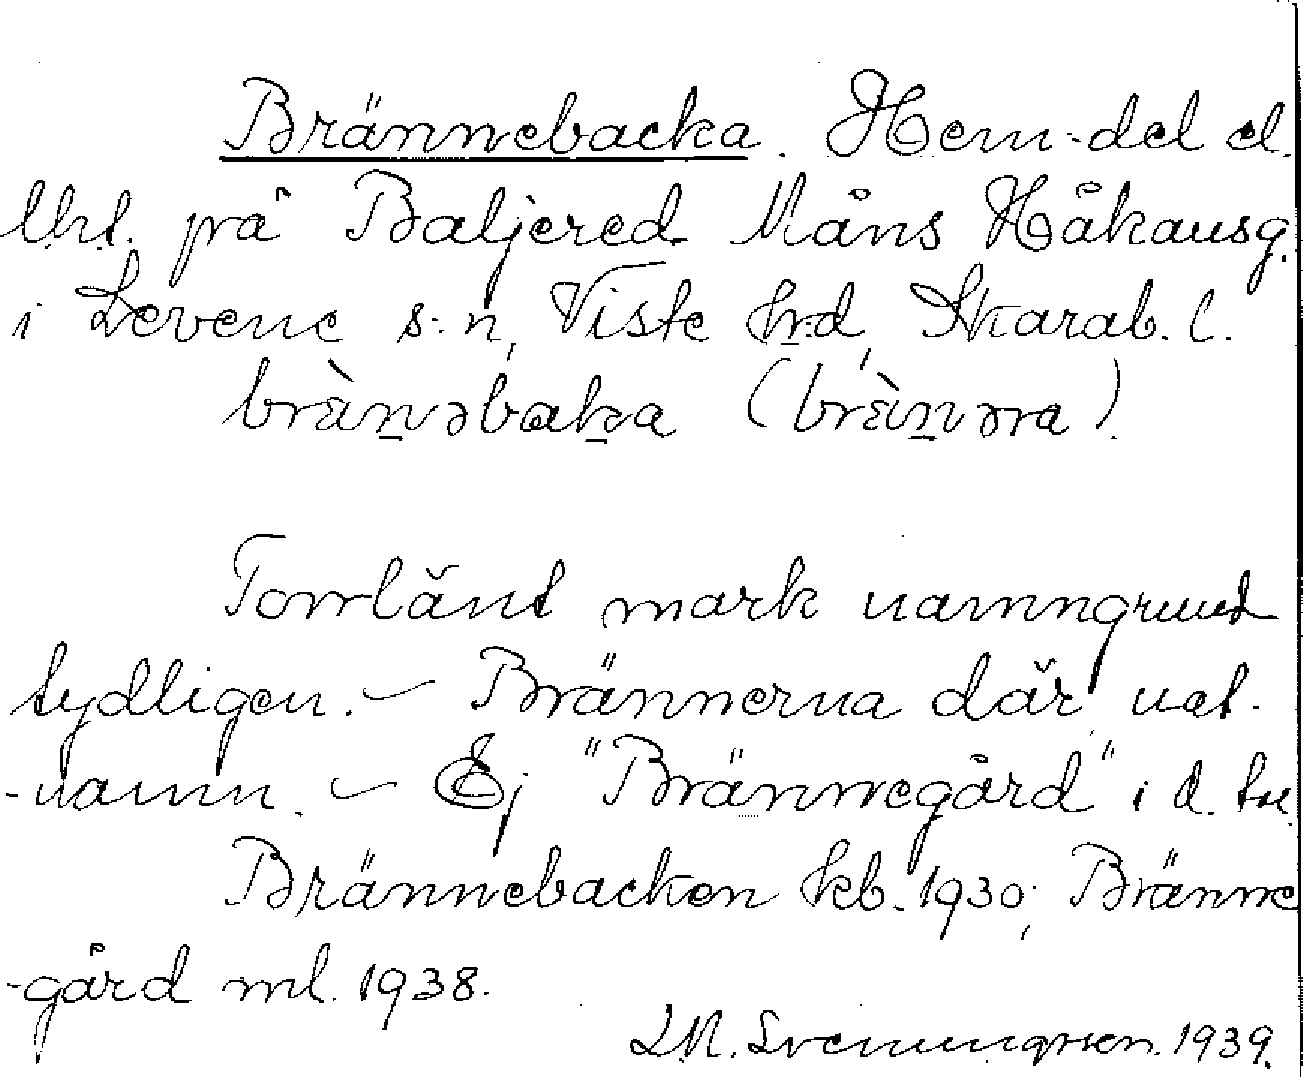 Brännebacka. Hem-del el.
lht. på Baljered Måns Håkansg.
i Levene s:n, Viste hrd, Skarab. l.
brɛ̀nəbaka (brɛ̀nəra).
Torrlänt mark namngrund
tydligen. – Brännerna där nat.
-namn. – Ej "Brännegård" i d. tu.
Brännebacken kb. 1930; Bränne
-gård ml. 1938.
L.M. Svenungsson. 1939.